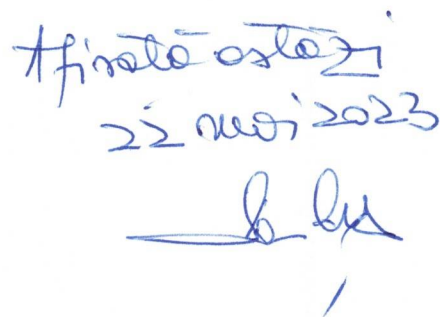 Afișată astăzi
22 mai 2023